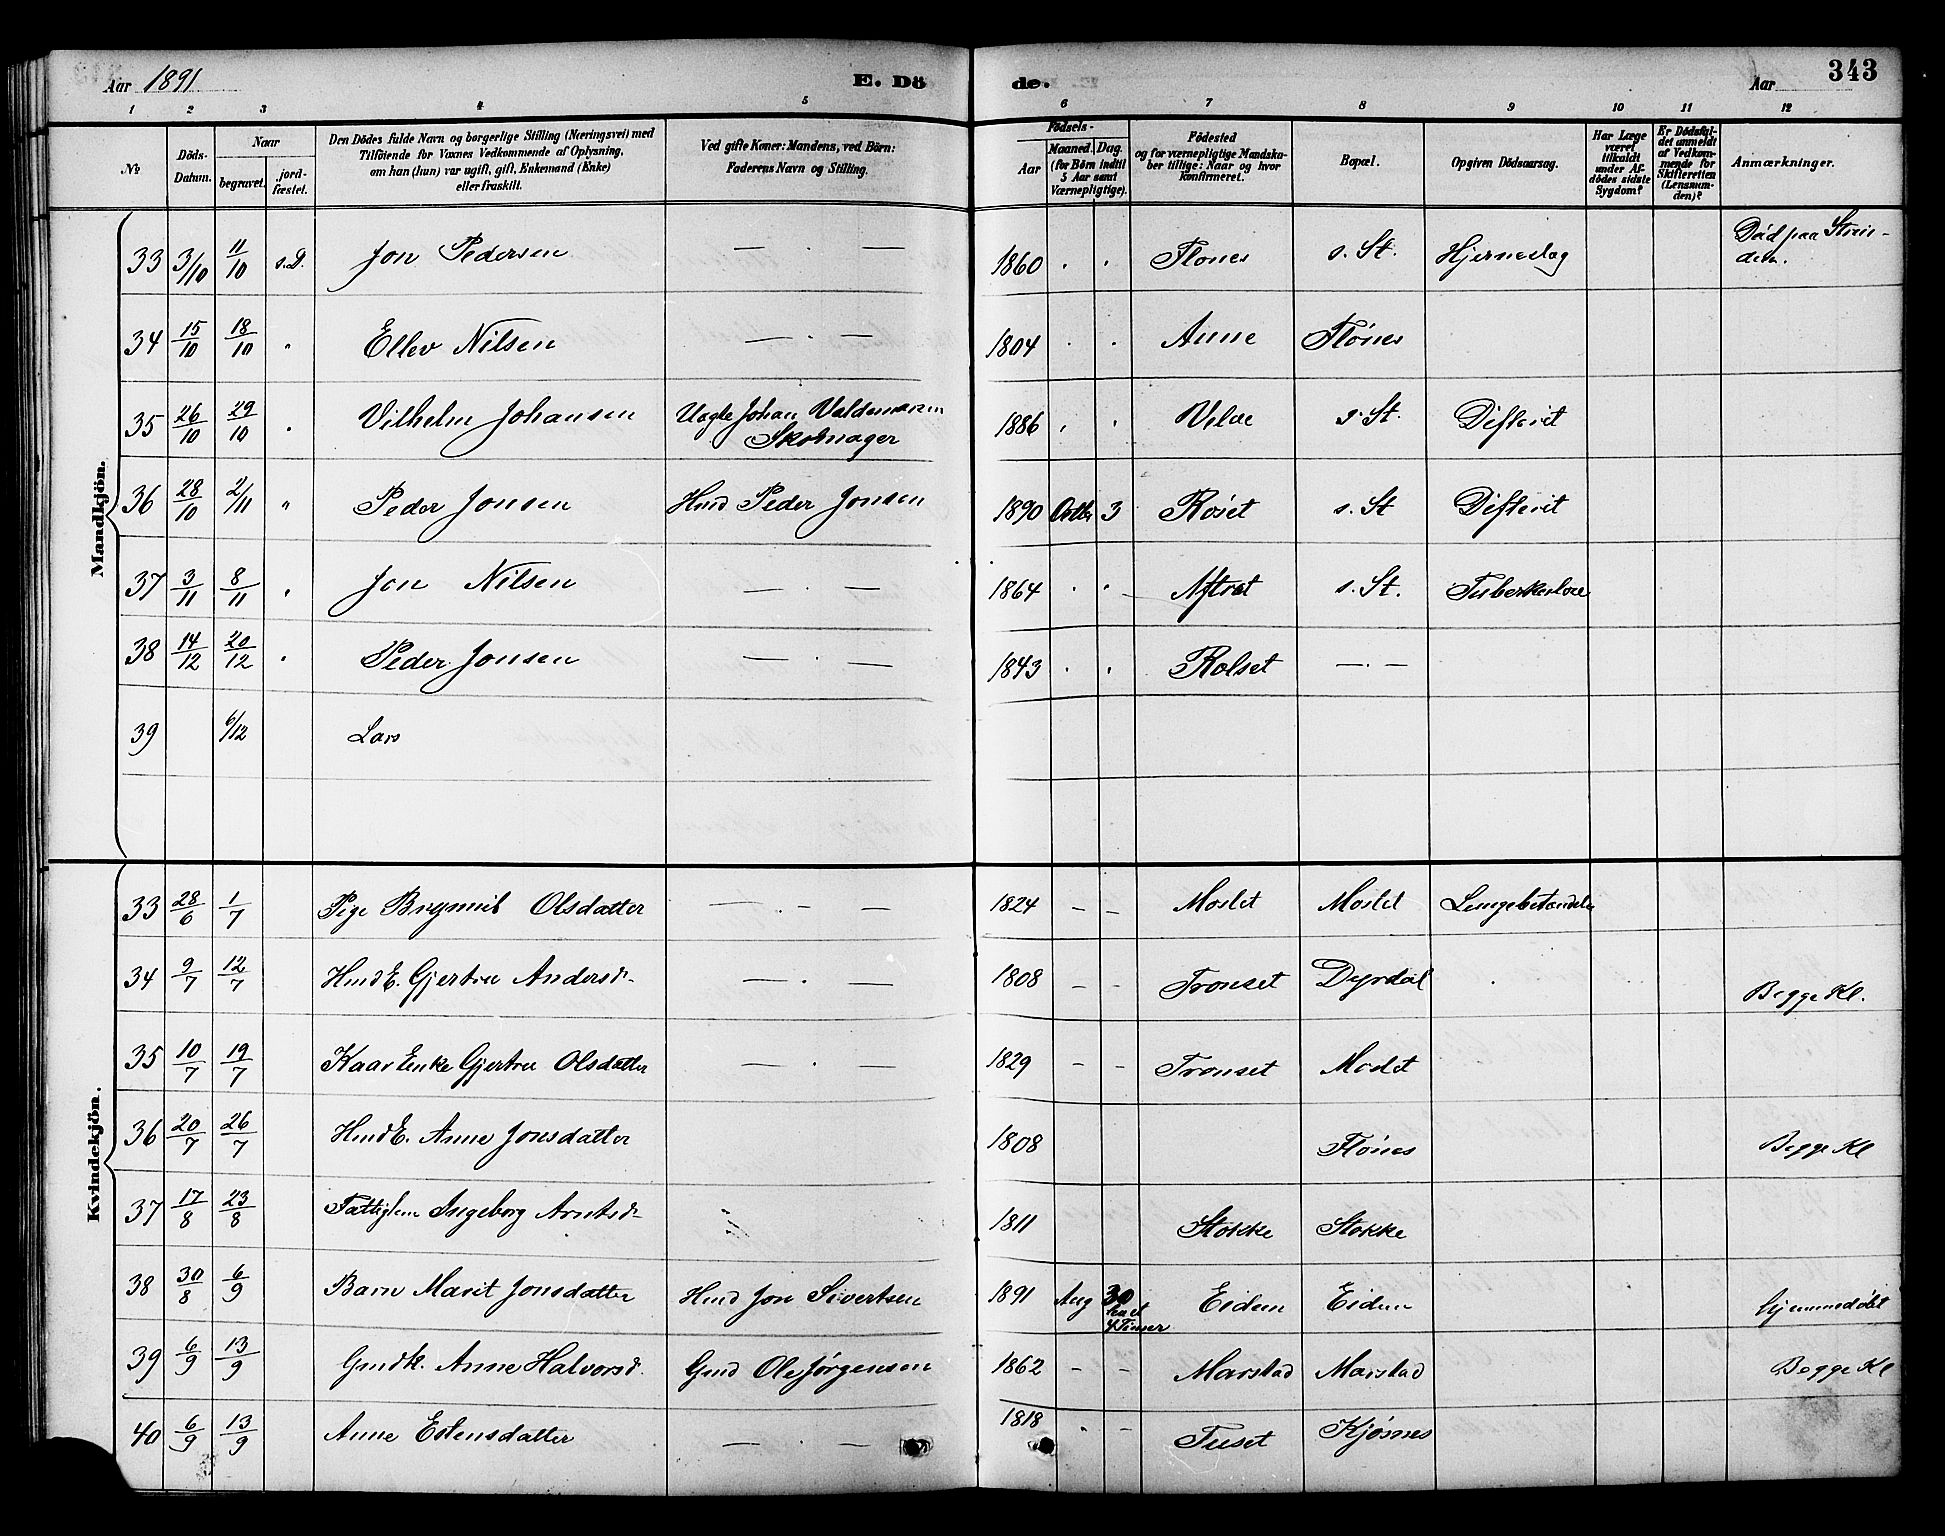 Aar 1891
E. Döde.
Aar
343
1 2 3 4 5 6 7 8 9 10 11 12
No
Döds-Datum.
Naar
begravet.
jord-fæstet.
Den Dödes fulde Navn og borgerlige Stilling (Næringsvei) med
Tilföiende for Voxnes Vedkommende af Oplysning,
om han (hun) var ugift, gift, Enkemand (Enke)
eller fraskilt.
Ved gifte Koner: Mandens, ved Börn:
Faderens Navn og Stilling.
Födsels-
Aar
Maaned. Dag.
(for Börn indtil
5 Aar samt
Værnepligtige).
Födested
og for værnepligtige Mandska-
ber tillige: Naar og hvor
konfirmeret.
Bopæl.
Opgiven Dödsaarsag.
Har Læge
været
tilkaldt
under Af-
dödes sidste
Sygdom?
Er Dödsfal-
det anmeldt
af Vedkom-
mende for
Skifteretten
(Lensman-
den)?
Anmærkninger.
Mandkjön.
33 3/10 11/10 s.D. Jon Pedersen — . — 1860 . . Flones s. St. Hjerneslag Död paa Strin-
den.
34 15/10 18/10 " Ellev Nilsen — . — 1804 . . Aune Flönes
35 26/10 29/10 " Vilhelm Johansen Johan Valdemarsen
Skomager 1886 . . s. St. Difterit
36 28/10 2/11 " Peder Jonsen Hmd Peder Jonsen 1890 Octbr 3 Röset s. St Difterit
37 3/11 8/11 " Jon Nilsen — . — 1864 . . Aftret s. St. Tuberkulose
38 14/12 20/12 " Peder Jonsen — . — 1843 . . Rolset — . —
39 6/12 Lars
Kvindekjön.
33 28/6 1/7 Pige Olsdatter — . — 1824 – – Moslet Moslet Lungebetændelse
34 9/7 12/7 HmdE. Gjertru Andersd. — . — 1808 – – Tronset Dyrdal Begge Kl.
35 10/7 19/7 Kaar Enke Gjertru Olsdatter — . — 1829 – – Tronset Moslet
36 20/7 26/7 HmdE. Anne Jonsdatter 1808 Flönes Begge Kl
37 17/8 23/8 Fattiglem Ingeborg Arntsd. 1811 Stokke Stokke
38 30/8 6/9 Barn Marit Jonsdatter Hmd Jon Sivertsen 1891 Aug 30
levet
4 Timer Eidem Eidem hjemmedöbt
39 6/9 13/9 Gmdk. Anne Halvorsd. Gmd Ole Jörgensen 1862 – – Marstad Marstad Begge Kl
40 6/9 13/9 Anne Estensdatter — . — 1818 . – Tuset Kjösnes